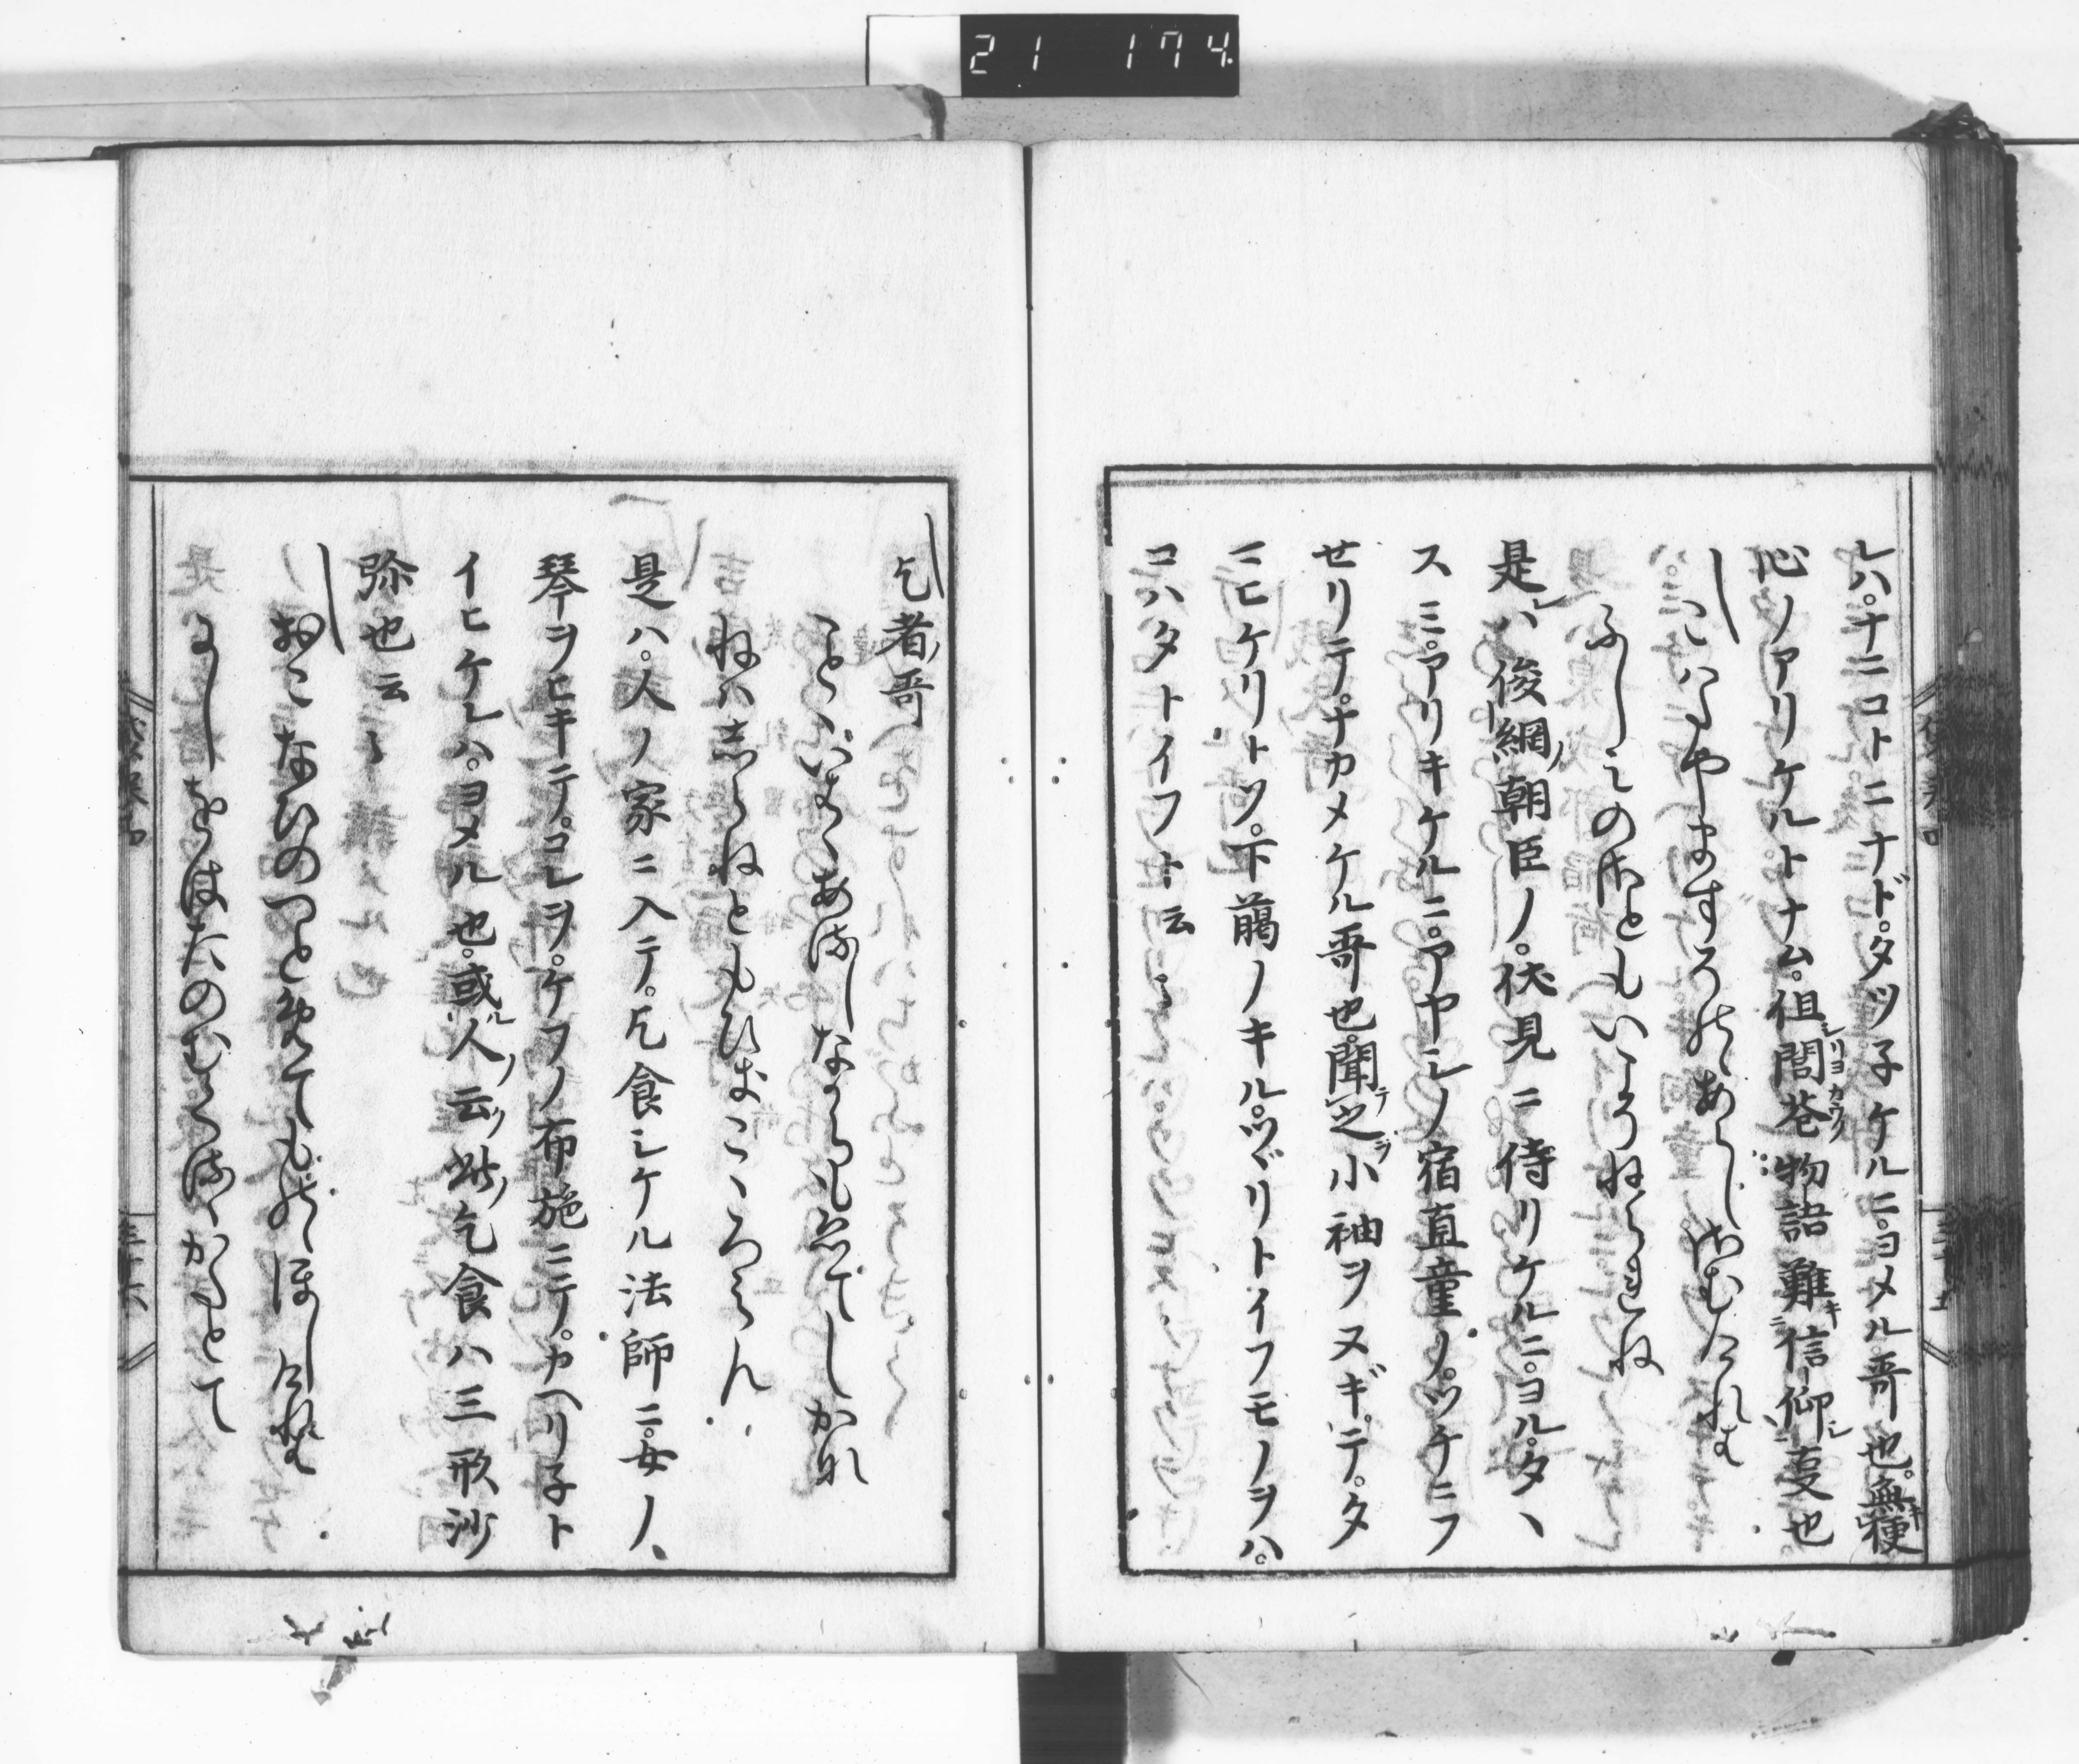 21 174
レハ。ナニコトニナド。タツ子ケルニ。ヨメル哥也。無梗
心ノアリケルトナム。但閭巷物語難信仰支也
こハたやますそのあらし
ふしみのさともいこそねられね
是ハ俊綱朝臣ノ。伏見ニ侍リケルニ。ヨル。タヽ
スミ。アリキケルニ。アヤシノ宿直童ノ。ツケニフ
せリテ。ナカメケル哥也。聞之小袖ヲヌギテ。タ
ニヒケリトソ。下﨟ノキル。ツヾリトイフモノヲハ。
コハタトイフト云々
乞者哥
ことゝいはゝあるしなからも
ねハしらねともひきこゝろみん
是ハ。人ノ家ニ入テ。乞食シケル法師ニ。女ノ、
琴ヲヒキテ。コレヲ。ケフノ布施ニテ。カヘリ子ト
イヒケレハ。ヨメル也。或人云此乞食ハ三形沙
弥也云々
おこなひのつとめてものゝほしけれは
にしをはたのむくるゝかたとて